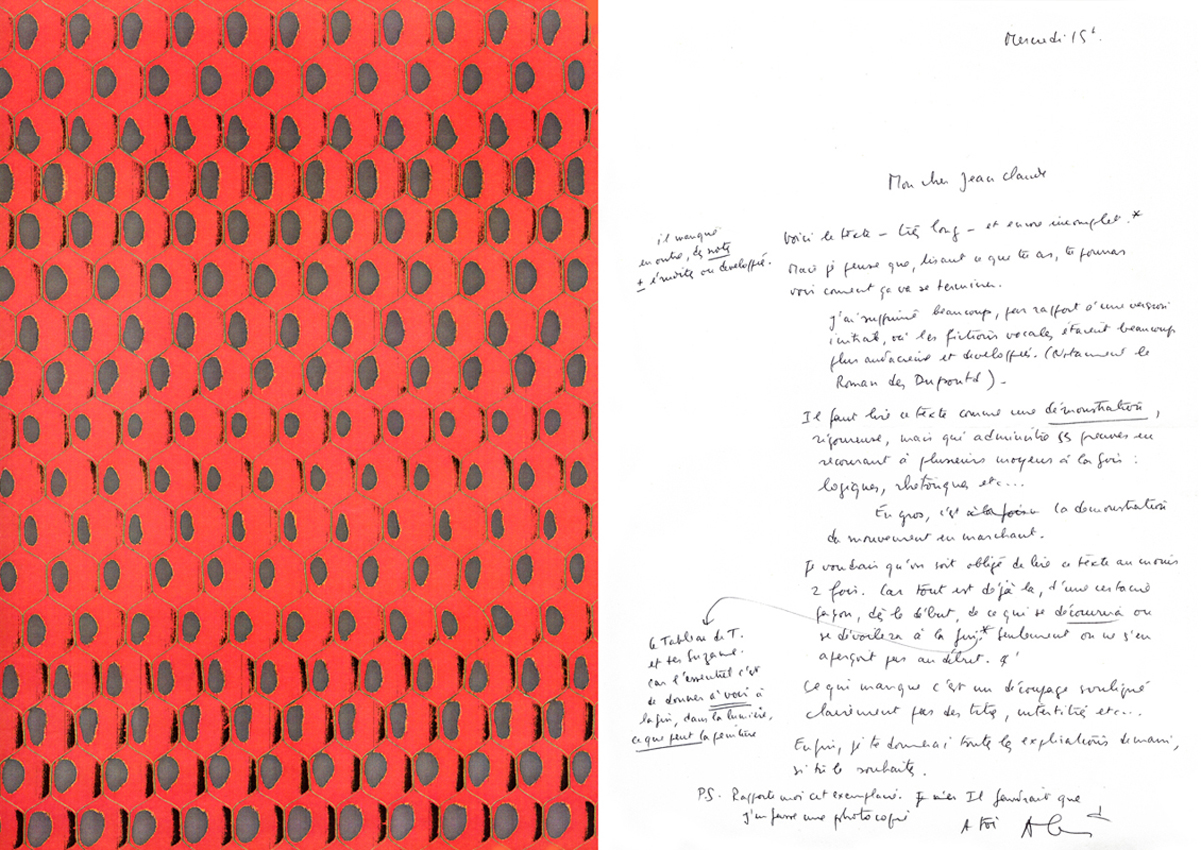 Mercredi 15
Mon cher Jean Claude
Voici le texte – très long – et encore incomplet.*
il manque
en outre, des notes
+ érudites ou developpées.
Mais je pense que, lisant ce que tu as, tu pourras
voir comment ça va se terminer.
J'ai supprimé beaucoup, par rapport à une version
initiale, où les fictions vocales étaient beaucoup
plus audacieuse et developpées. (Notamment le
Roman des Duponts) –
Il faut lire ce texte comme une démonstration,
rigoureuse, mais qui administre ses preuves en
recourant à plusieurs moyens à la fois :
logiques, rhétoriques etc...
En gros, c'est à la fois la démonstration
du mouvement en marchant.
Je voudrais qu'on soit obligé de lire ce texte au moins
2 fois. Car tout est déjà là, d'une certaine
façon, dès le début, de ce qui se découvrira ou
se dévoilera à la fin.* Seulement on ne s'en
aperçoit pas au début.
le Tableau de T.
et ses Suzanne.
car l'essentiel c'est
de donner à voir à
la fin, dans la lumière,
ce que peut la peinture
Ce qui manque c'est un découpage souligné
clairement par des titres, intertitres etc...
Enfin, je te donnerai toutes les explications demain,
si tu le souhaites.
P.S. Rapporte moi cet exemplaire. Il faudrait que
j'en fasse une photocopie
A toi